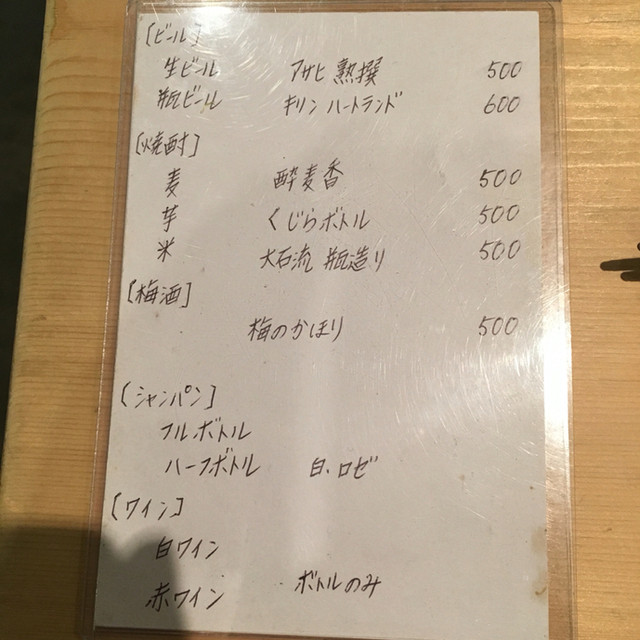 [ビール]
生ビール アサヒ 熟撰 500
瓶ビール キリン ハートランド 600
[焼酎]
麦 酔麦香 500
芋 くじらボトル 500
米 大石流 瓶造り 500
[梅酒]
梅のかほり 500
[シャンパン]
フルボトル
ハーフボトル 白・ロゼ
[ワイン]
白ワイン
赤ワイン ボトルのみ